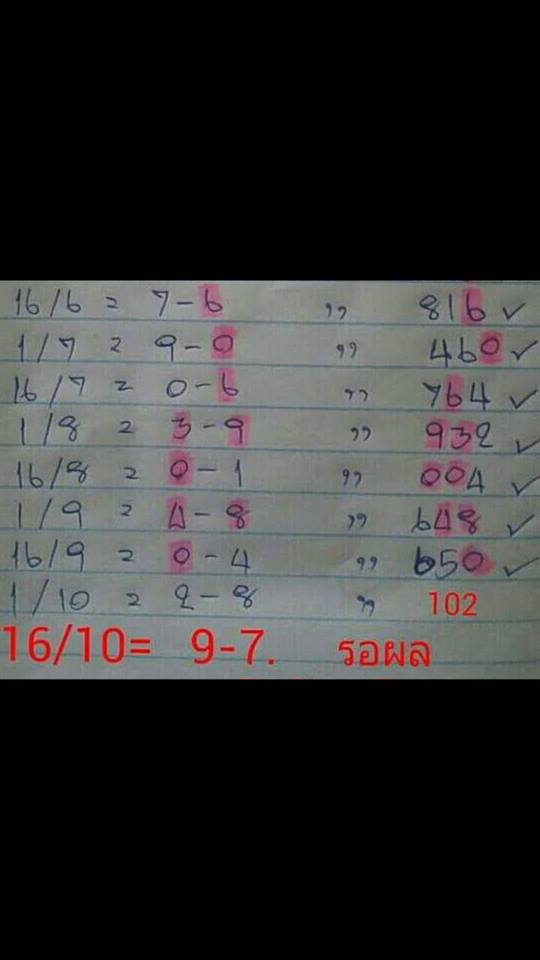 16/6 = 7-6 ,, 816 ✓
1/7 = 9-0 ,, 460 ✓
16/7 = 0-6 ,, 764 ✓
1/8 = 3-9 ,, 932 ✓
16/8 = 0-1 ,, 004 ✓
1/9 = 4-8 ,, 648 ✓
16/9 = 0-4 ,, 650 ✓
1/10 = 2-8 ,, 102
16/10= 9-7. รอผล